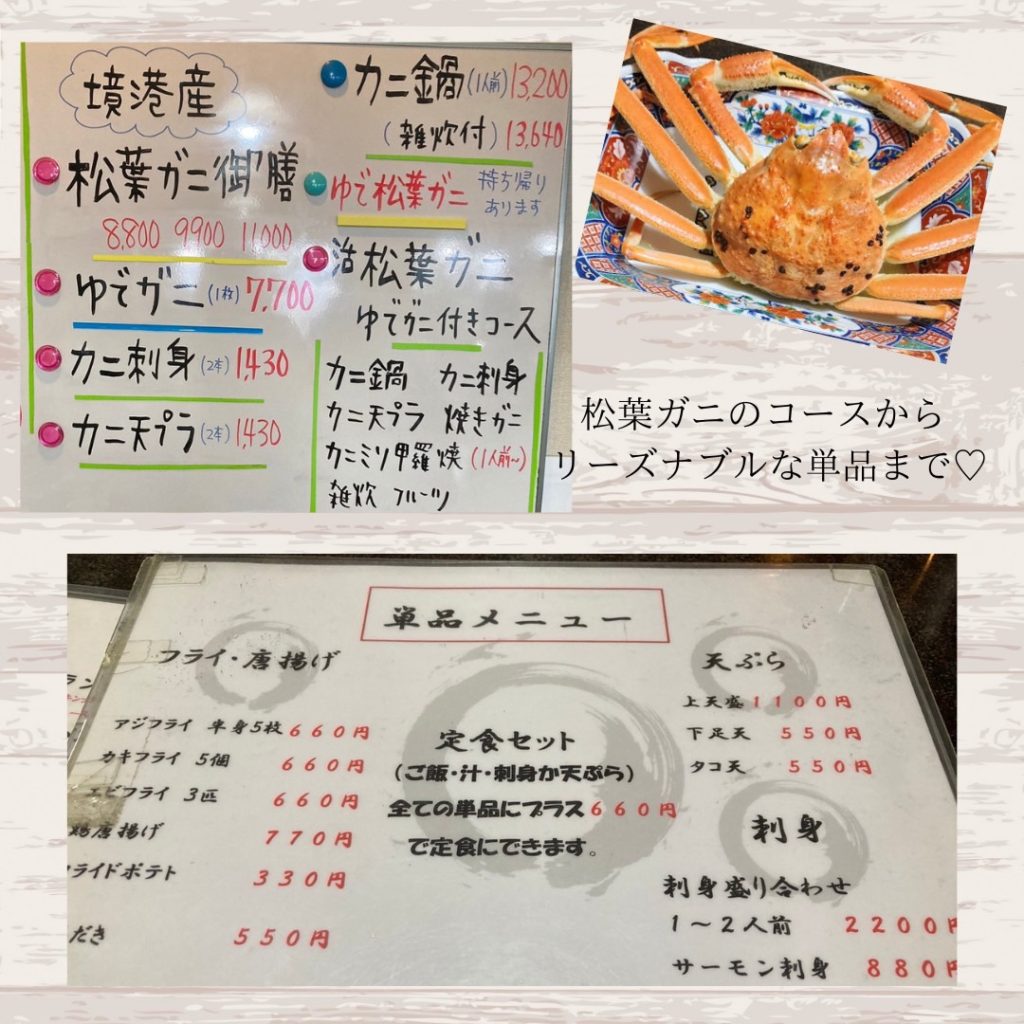 境港産
松葉ガニ御膳
8,800 9900 11,000
ゆでガニ(1枚) 7,700
カニ刺身(2本) 1,430
カニ天プラ(2本) 1,430
カニ鍋(1人前) 13,200
(雑炊付) 13,640
ゆで松葉ガニ 持ち帰り
あります
活松葉ガニ
ゆでガニ付きコース
カニ鍋 カニ刺身
カニ天プラ 焼きガニ
カニミソ甲羅焼(1人前~)
雑炊 フルーツ
松葉ガニのコースから
リーズナブルな単品まで♡
単品メニュー
フライ・唐揚げ
アジフライ 半身5枚 660円
カキフライ 5個 660円
エビフライ 3匹 660円
鶏唐揚げ 770円
ライドポテト 330円
だき 550円
定食セット
(ご飯・汁・刺身か天ぷら)
全ての単品にプラス660円
で定食にできます。
天ぷら
上天盛 1100円
下足天 550円
タコ天 550円
刺身
刺身盛り合わせ
1~2人前 2200円
サーモン刺身 880円